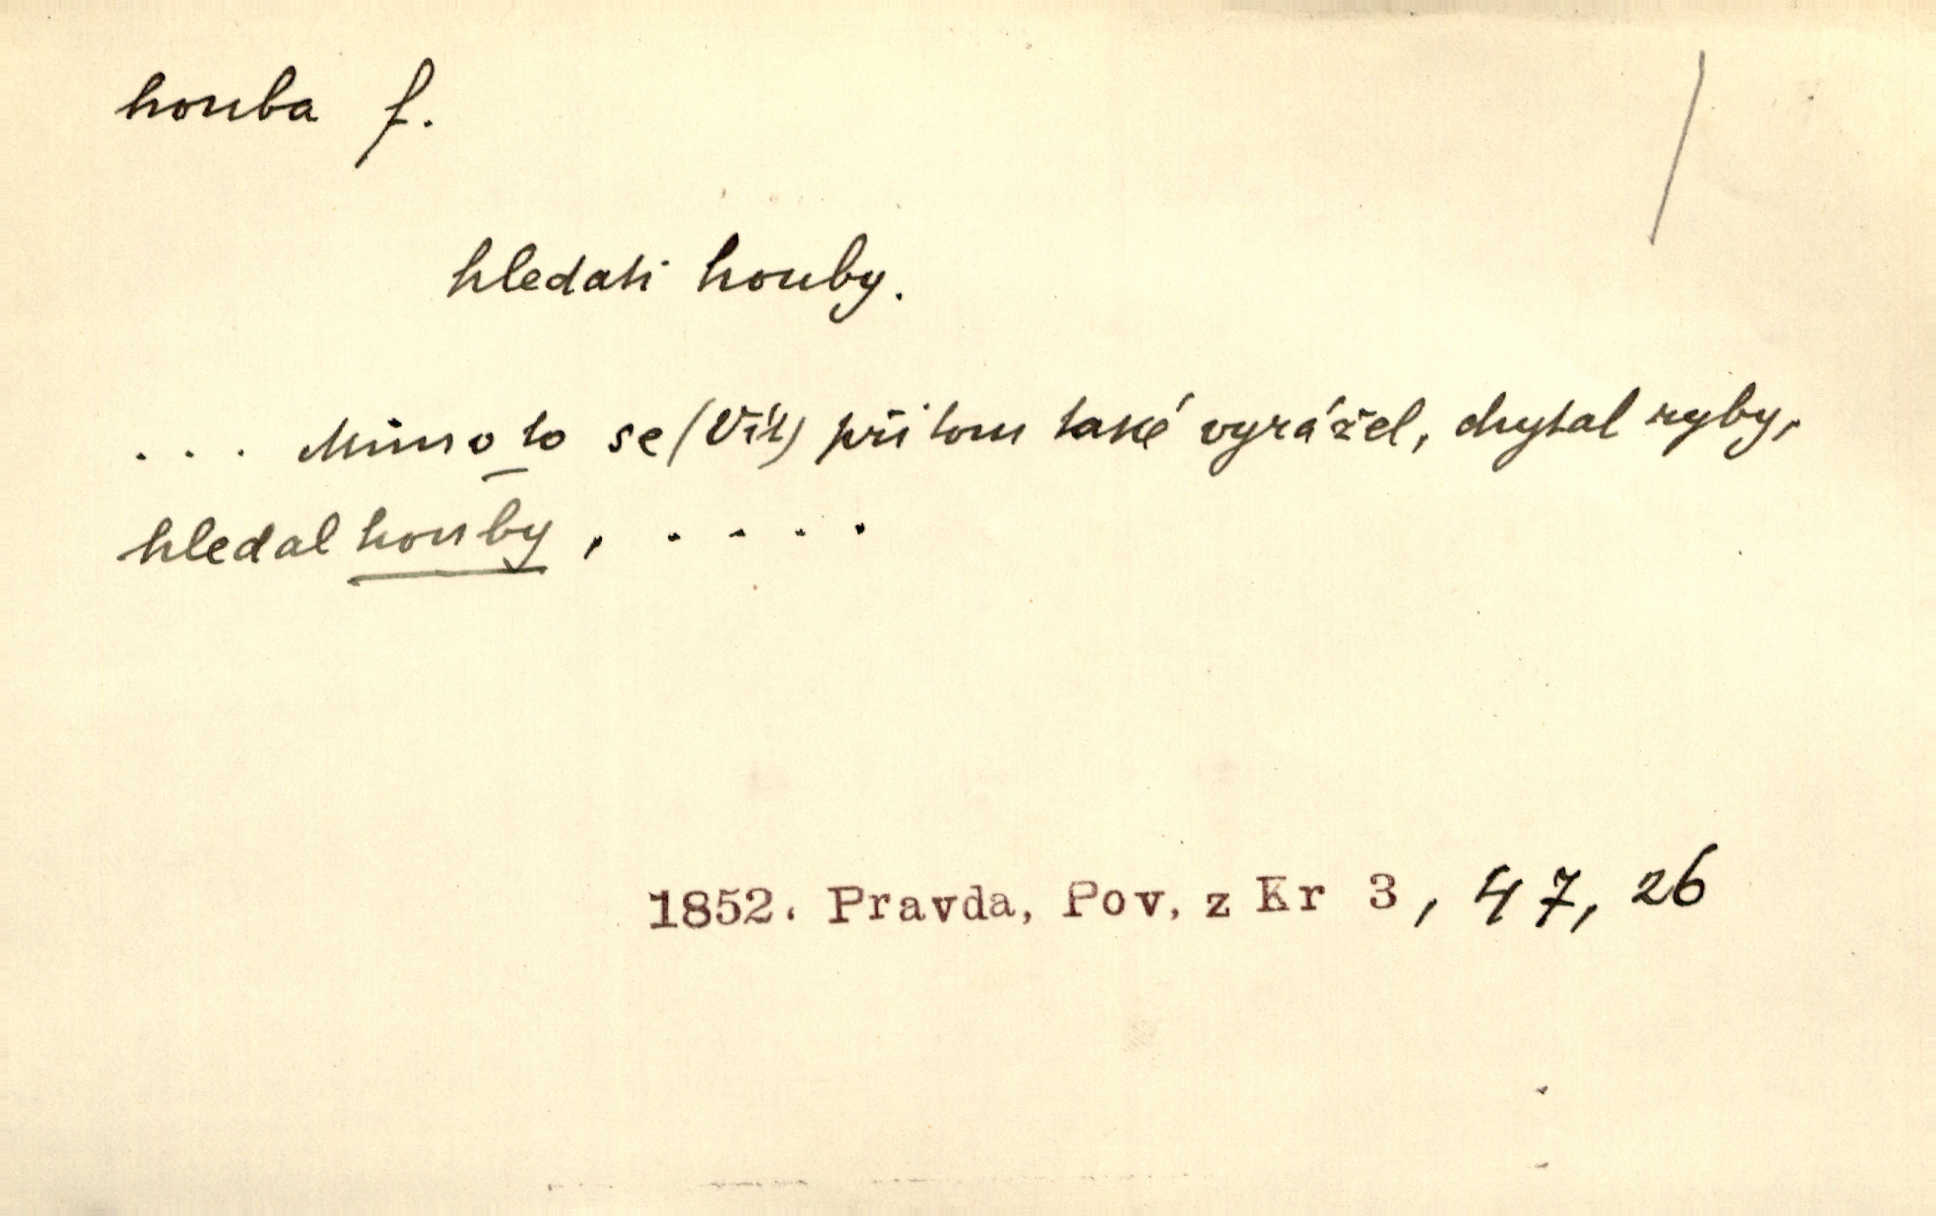 houba f.
hledati houby.
... Mimo to se (Vít) při tom také vyrážel, chytal ryby,
hledal houby, ....
1852. Pravda, Pov. z Kr 3, 47, 26